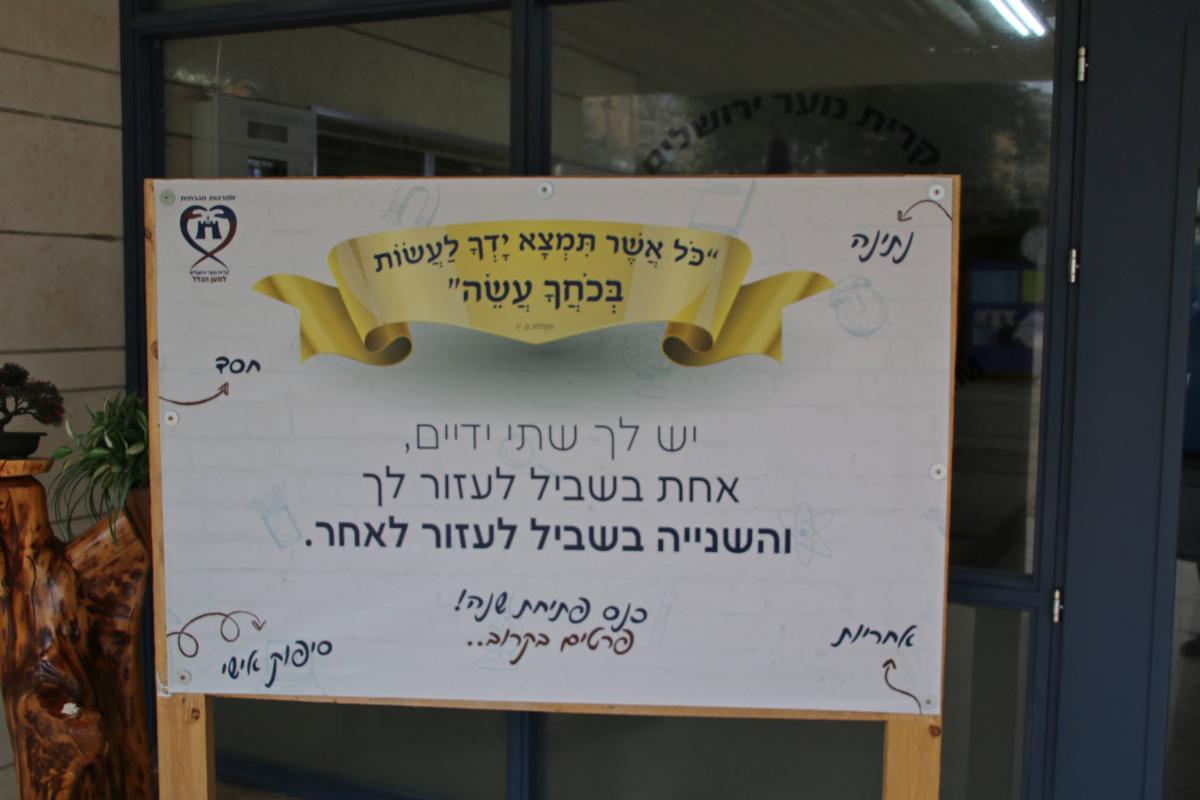 קרית נוער ירושלים
מעורבות חברתית
קרית נוער ירושלים
למען הכלל
נתינה
"כֹּל אֲשֶׁר תִּמְצָא יָדְךָ לַעֲשׂוֹת
בְּכֹחֲךָ עֲשֵׂה"
(קהלת ט, י)
חסד
יש לך שתי ידיים,
אחת בשביל לעזור לך
והשנייה בשביל לעזור לאחר.
כנס פתיחת שנה!
פרטים בקרוב..
אחריות
סיפוק אישי